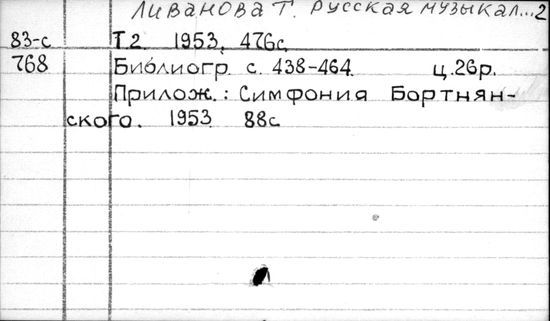 Ливанова Т. Русская музыкал...2
83-с Т.2. 1953, 476с.
768 Библиогр. с. 438-464. ц.26р.
Прилож.: Симфония Бортнян-
ского. 1953. 88с